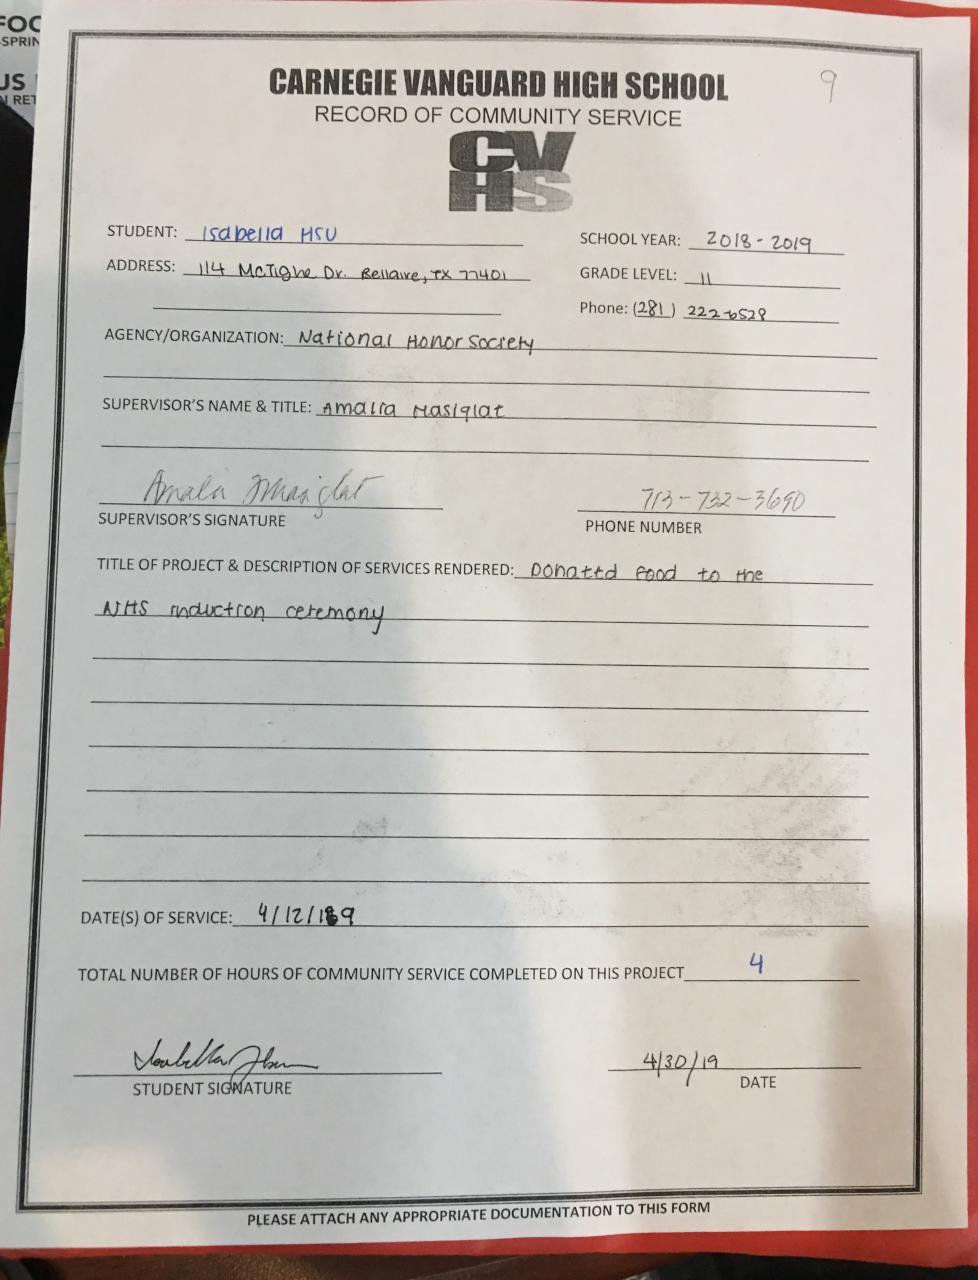 FOC
-SPRIN
US
N RET
9
CARNEGIE VANGUARD HIGH SCHOOL
RECORD OF COMMUNITY SERVICE
CV
HS
STUDENT: Isabella HSU
SCHOOL YEAR: 2018-2019
ADDRESS: 114 McTighe Dr. Bellaire, TX 77401
GRADE LEVEL: 11
Phone: (281) 222-6528
AGENCY/ORGANIZATION: National Honor Society
SUPERVISOR'S NAME & TITLE: Amalia Masiglat
Amalia Masiglat 713-732-3690
SUPERVISOR'S SIGNATURE PHONE NUMBER
TITLE OF PROJECT & DESCRIPTION OF SERVICES RENDERED: Donated food to the
NHS induction ceremony
DATE(S) OF SERVICE: 4/12/19
TOTAL NUMBER OF HOURS OF COMMUNITY SERVICE COMPLETED ON THIS PROJECT 4
Isabella Hsu 4/30/19
STUDENT SIGNATURE DATE
PLEASE ATTACH ANY APPROPRIATE DOCUMENTATION TO THIS FORM